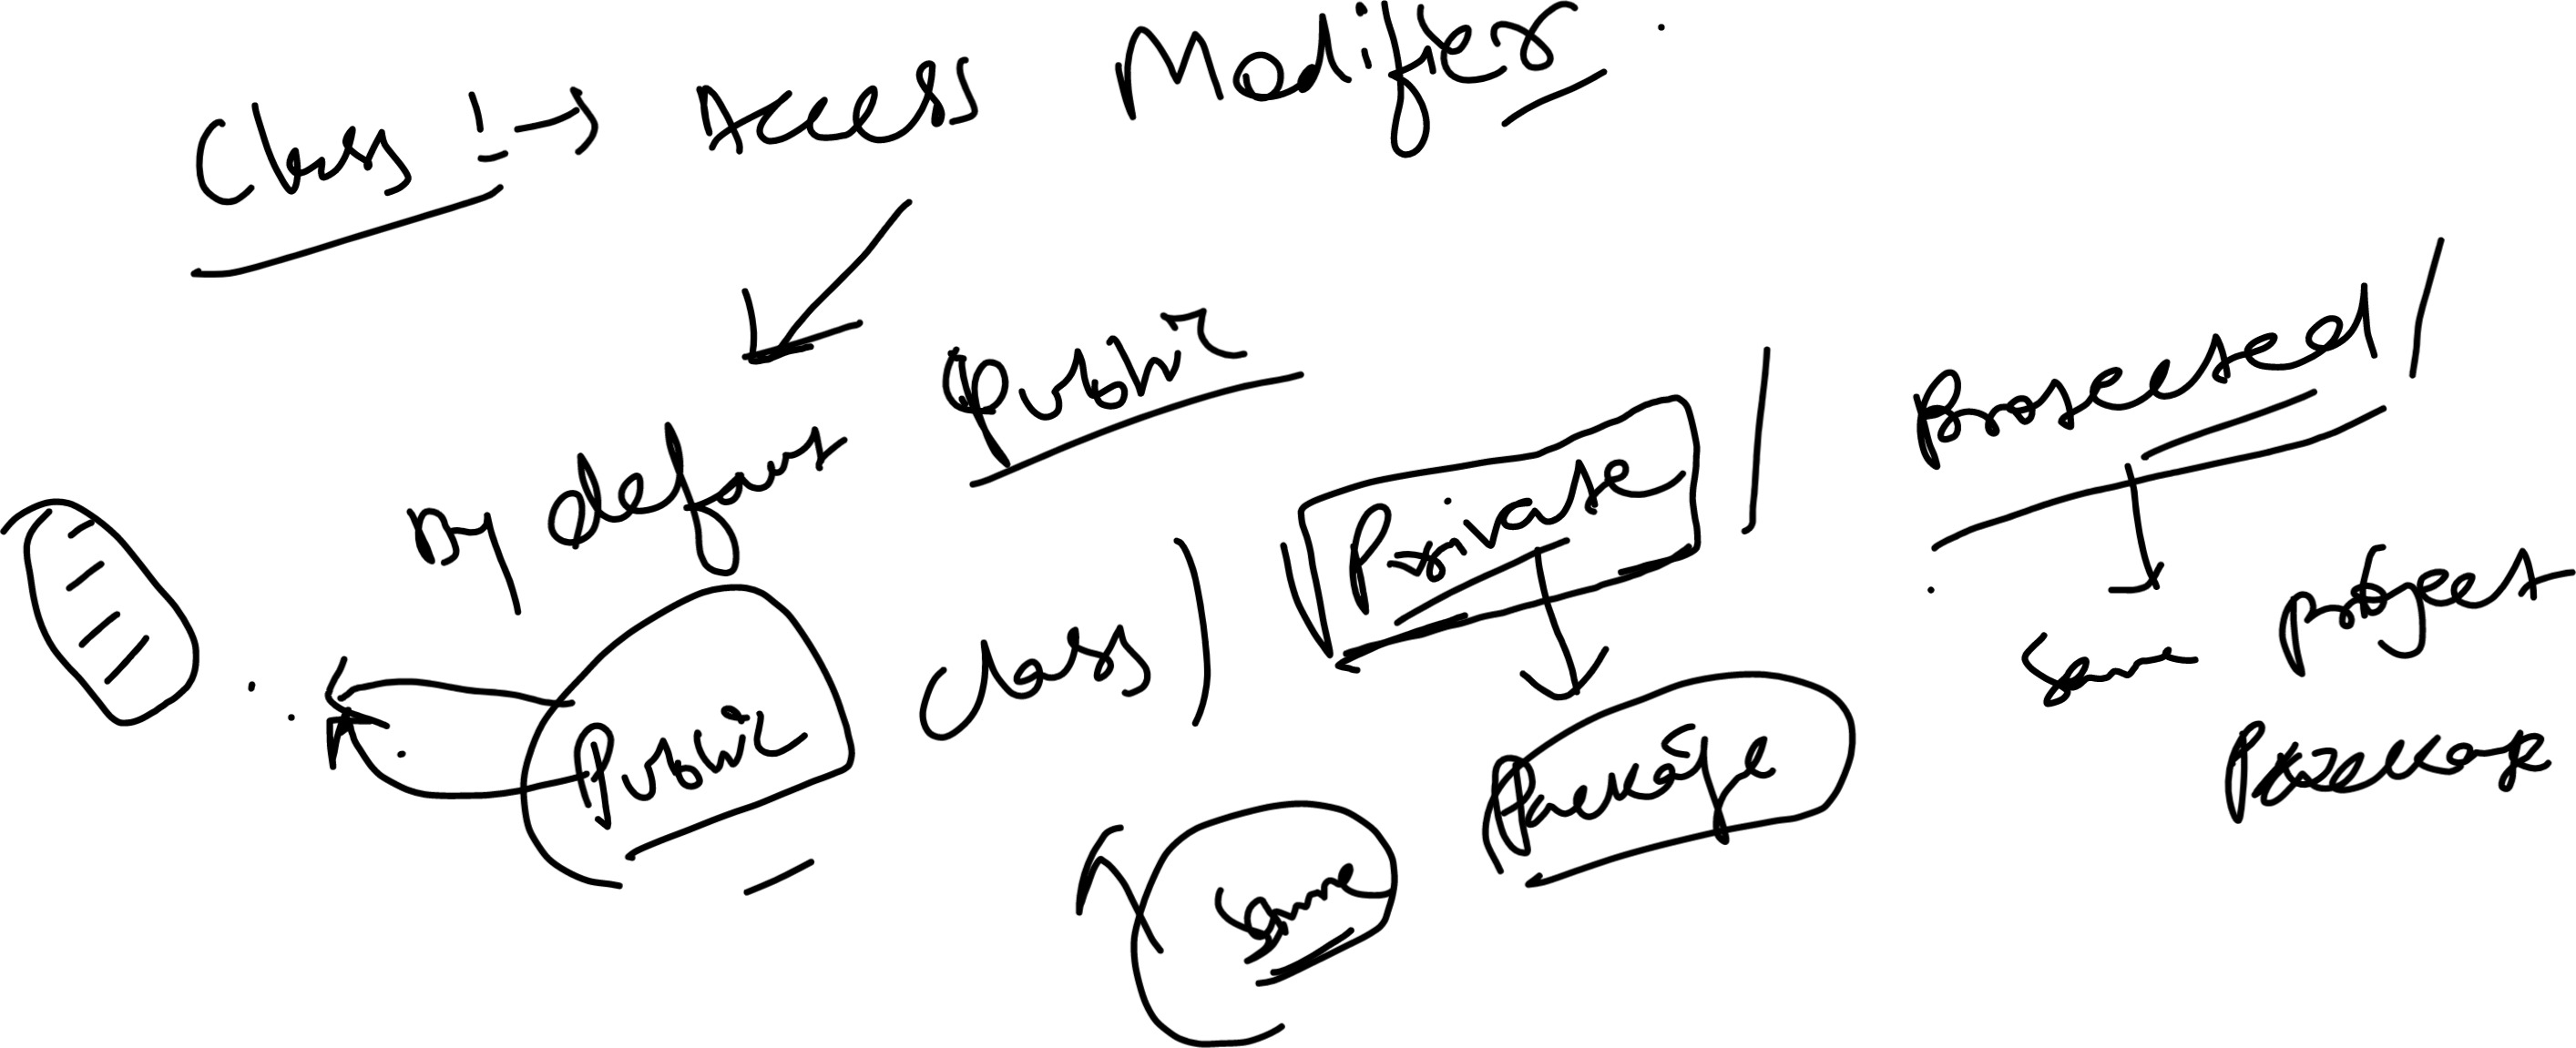 Class !→ Access Modifier.
By default Public
Public class / Private / Protected /
Same Package
Same Project
Package